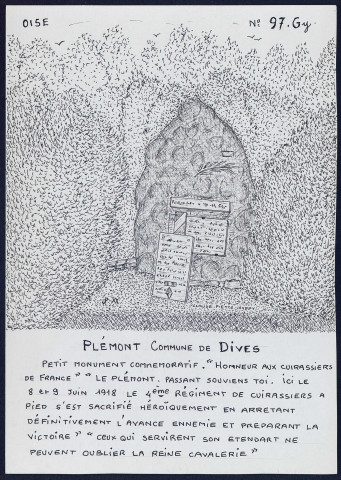 OISE
N° 97.Gy
PLÉMONT COMMUNE DE DIVES
PETIT MONUMENT COMMEMORATIF. "HONNEUR AUX CUIRASSIERS
DE FRANCE" "LE PLÉMONT. PASSANT SOUVIENS TOI. ICI LE
8 et 9 JUIN 1918 LE 4ÈME RÉGIMENT DE CUIRASSIERS A
PIED S'EST SACRIFIÉ HÉROÏQUEMENT EN ARRETANT
DÉFINITIVEMENT L'AVANCE ENNEMIE ET PREPARANT LA
VICTOIRE" "CEUX QUI SERVIRENT SON ETENDART NE
PEUVENT OUBLIER LA REINE CAVALERIE"